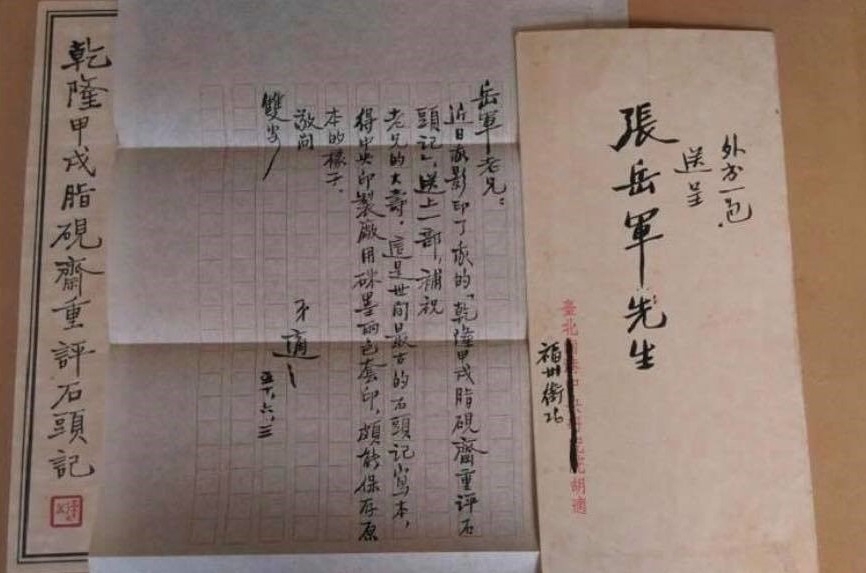 外書一包
送呈
張岳軍先生
臺北南港中央研究院胡適
福州街26
岳軍老兄：
近日我影印了我的「乾隆甲戌脂硯齋重評石
頭記」，送上一部，補祝
老兄的大壽。這是世間最古的石頭記寫本，
得中央印製廠用硃墨兩色套印，頗能保存原
本的樣子。
敬問
雙安
弟適
五十，六，三
乾隆甲戌脂硯齋重評石頭記